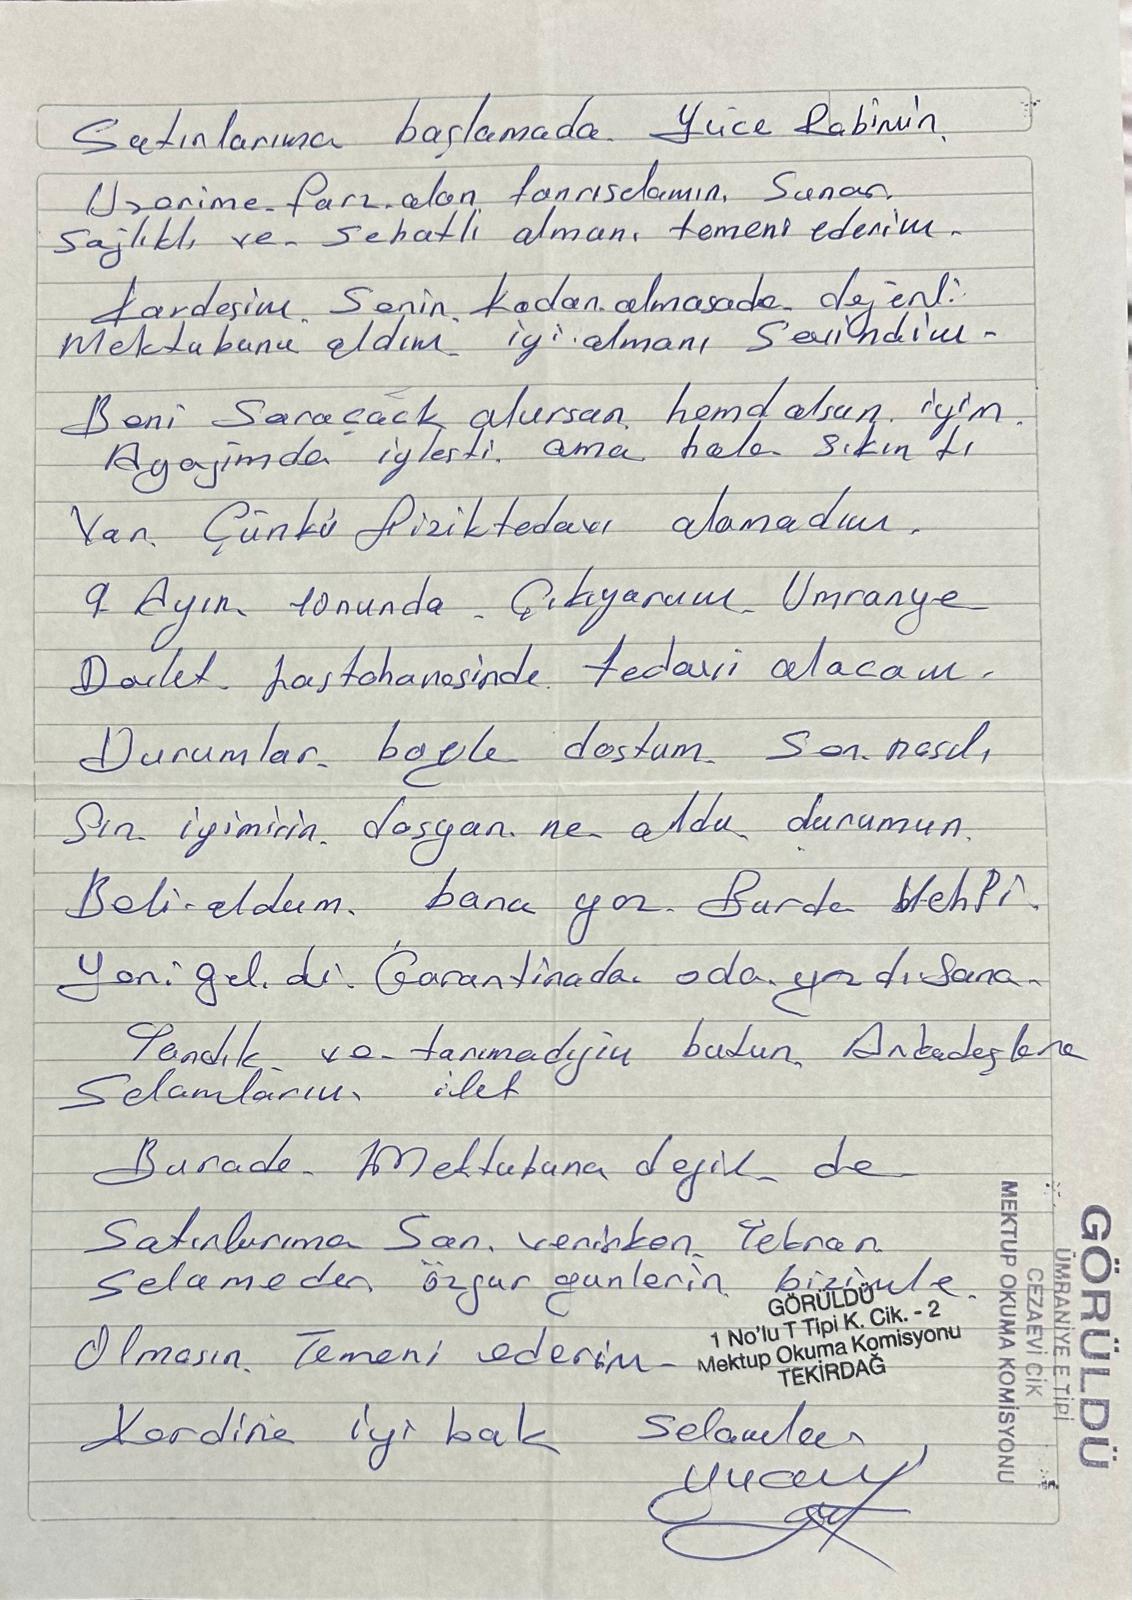 Satırlarıma başlamada Yüce Rabimin
Uzerime farz olan tanrıselamın. Sunar
sağlıklı ve sehatli olmanı temeni ederim.
Kardeşim. Senin kadan olmasada değerli
Mektubunu aldım iyi olmanı Sevindim -
Beni Saraçack olursan hemdolsun iyim.
Ayağımda iyleşti ama hala sıkıntı
Var. Çünkü fiziktedavi alamadım.
9 Ayın sonunda. Çıkıyorum. Umranye
Davlet hastahanesinde tedavi alacam.
Durumlar boyle dostum Sen nasıl
Sın iyimisin dosyan ne oldu durumun
Beli-oldum. bana yaz. Burda Vehpi.
Yeni gel. di. Garantinada. oda yazdı sana.
Tandık ve tanımadığım butun. Arkadeşlere
Selamlarım. ilet
Burade Mektubuna değil de
Satırlarıma Son. verirken. Tekrar
selameder özgur gunlerin bizimle.
Olmasın. Temeni ederim -
Kendine iyi bak Selamlar
GÖRÜLDÜ
1 No'lu T Tipi K. Cik. - 2
Mektup Okuma Komisyonu
TEKİRDAĞ
GÖRÜLDÜ
ÜMRANİYE E TİPİ
CEZAEVİ CİK
MEKTUP OKUMA KOMİSYONU